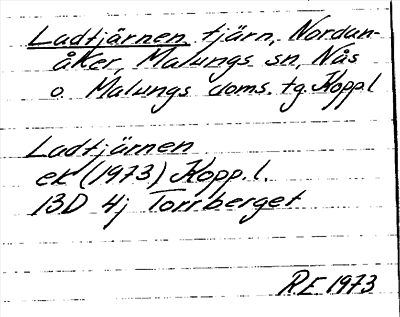 Ladtjärnen, tjärn, Nordan-
åker, Malungs sn, Nås
o. Malungs doms. tg. Kopp.l
Ladtjärnen
ek (1973) Kopp. l.
13D 4j Torrberget
RE 1973